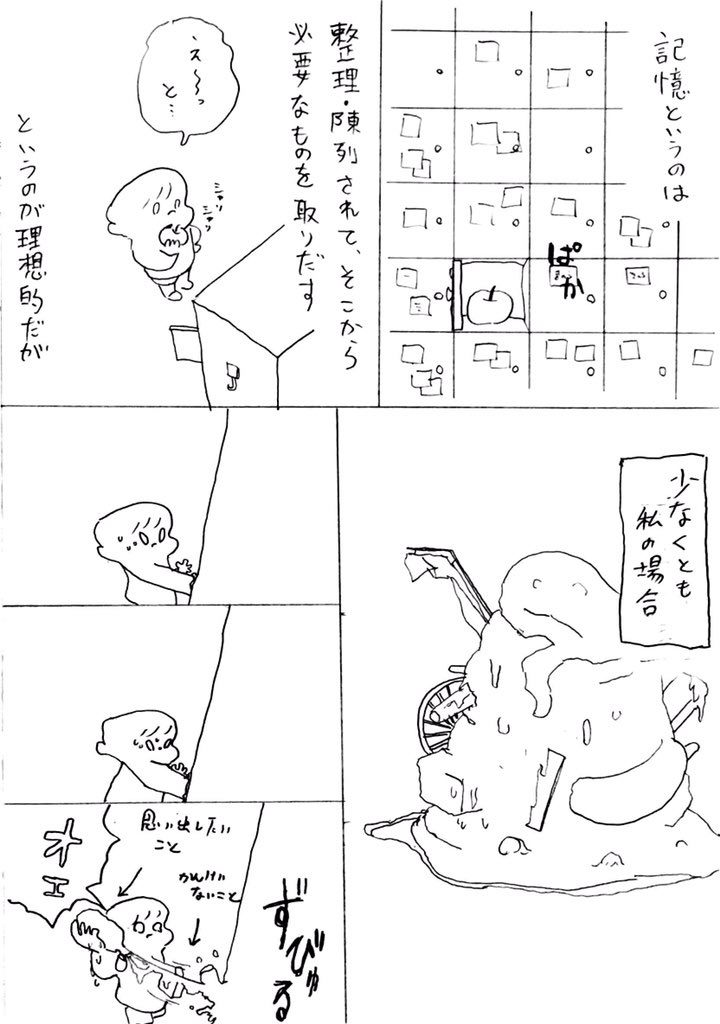 記憶というのは
ぱか
整理・陳列されて、そこから
必要なものを取りだす
え〜〜っ
と…
シャリ
シャリ
というのが理想的だが
少なくとも
私の場合
思い出したい
こと
かんけい
ないこと
オエ
ずびゅる